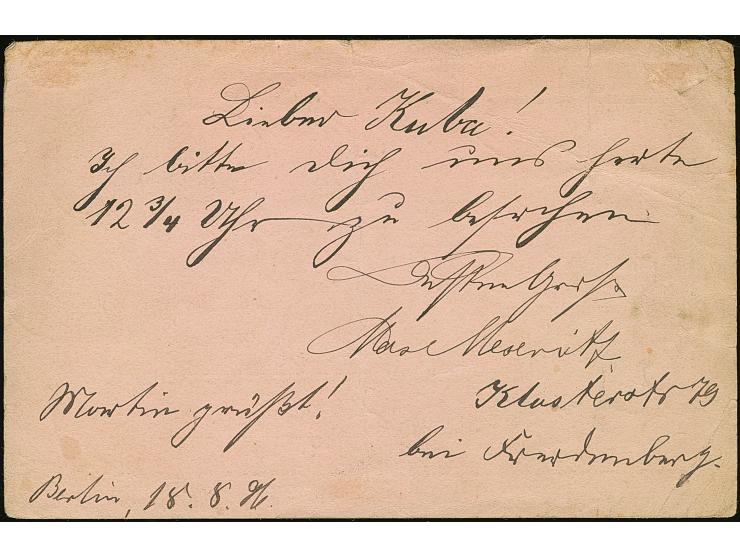 Lieber Kuba!
Ich bitte Dich uns heute
12 3/4 Uhr zu besuchen
Besten Gruß
Max Meseritz
Martin grüßt!
Klosterstr 79
bei Freudenberg.
Berlin, 18. 8. 96.